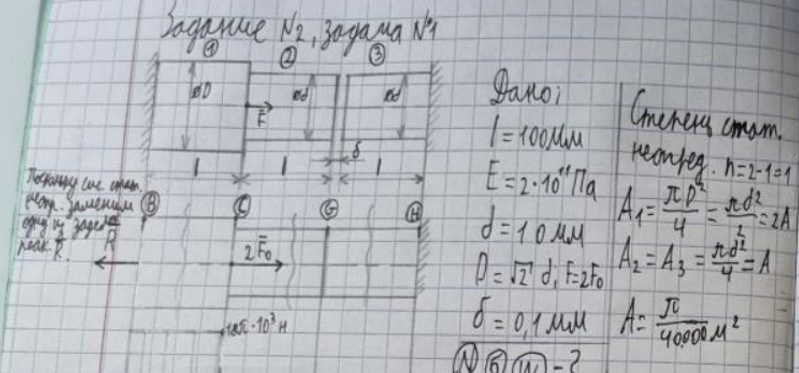 Задание N2, задача N1
① ② ③
øD ød ød
F
δ
l l l
Поскольку сис. стат.
неопр. заменим
одну из задел.
реак. R.
B C G H
R
2F₀
18π·10³ Н
Дано:
l = 100мм
E = 2·10¹¹ Па
d = 10 мм
D = √2 d, F=2F₀
δ = 0,1 мм
N σ W - ?
Степень стат.
неопред. n=2-1=1
A₁ = πD²/4 = πd²/2 = 2A
A₂ = A₃ = πd²/4 = A
A = π/40000 м²